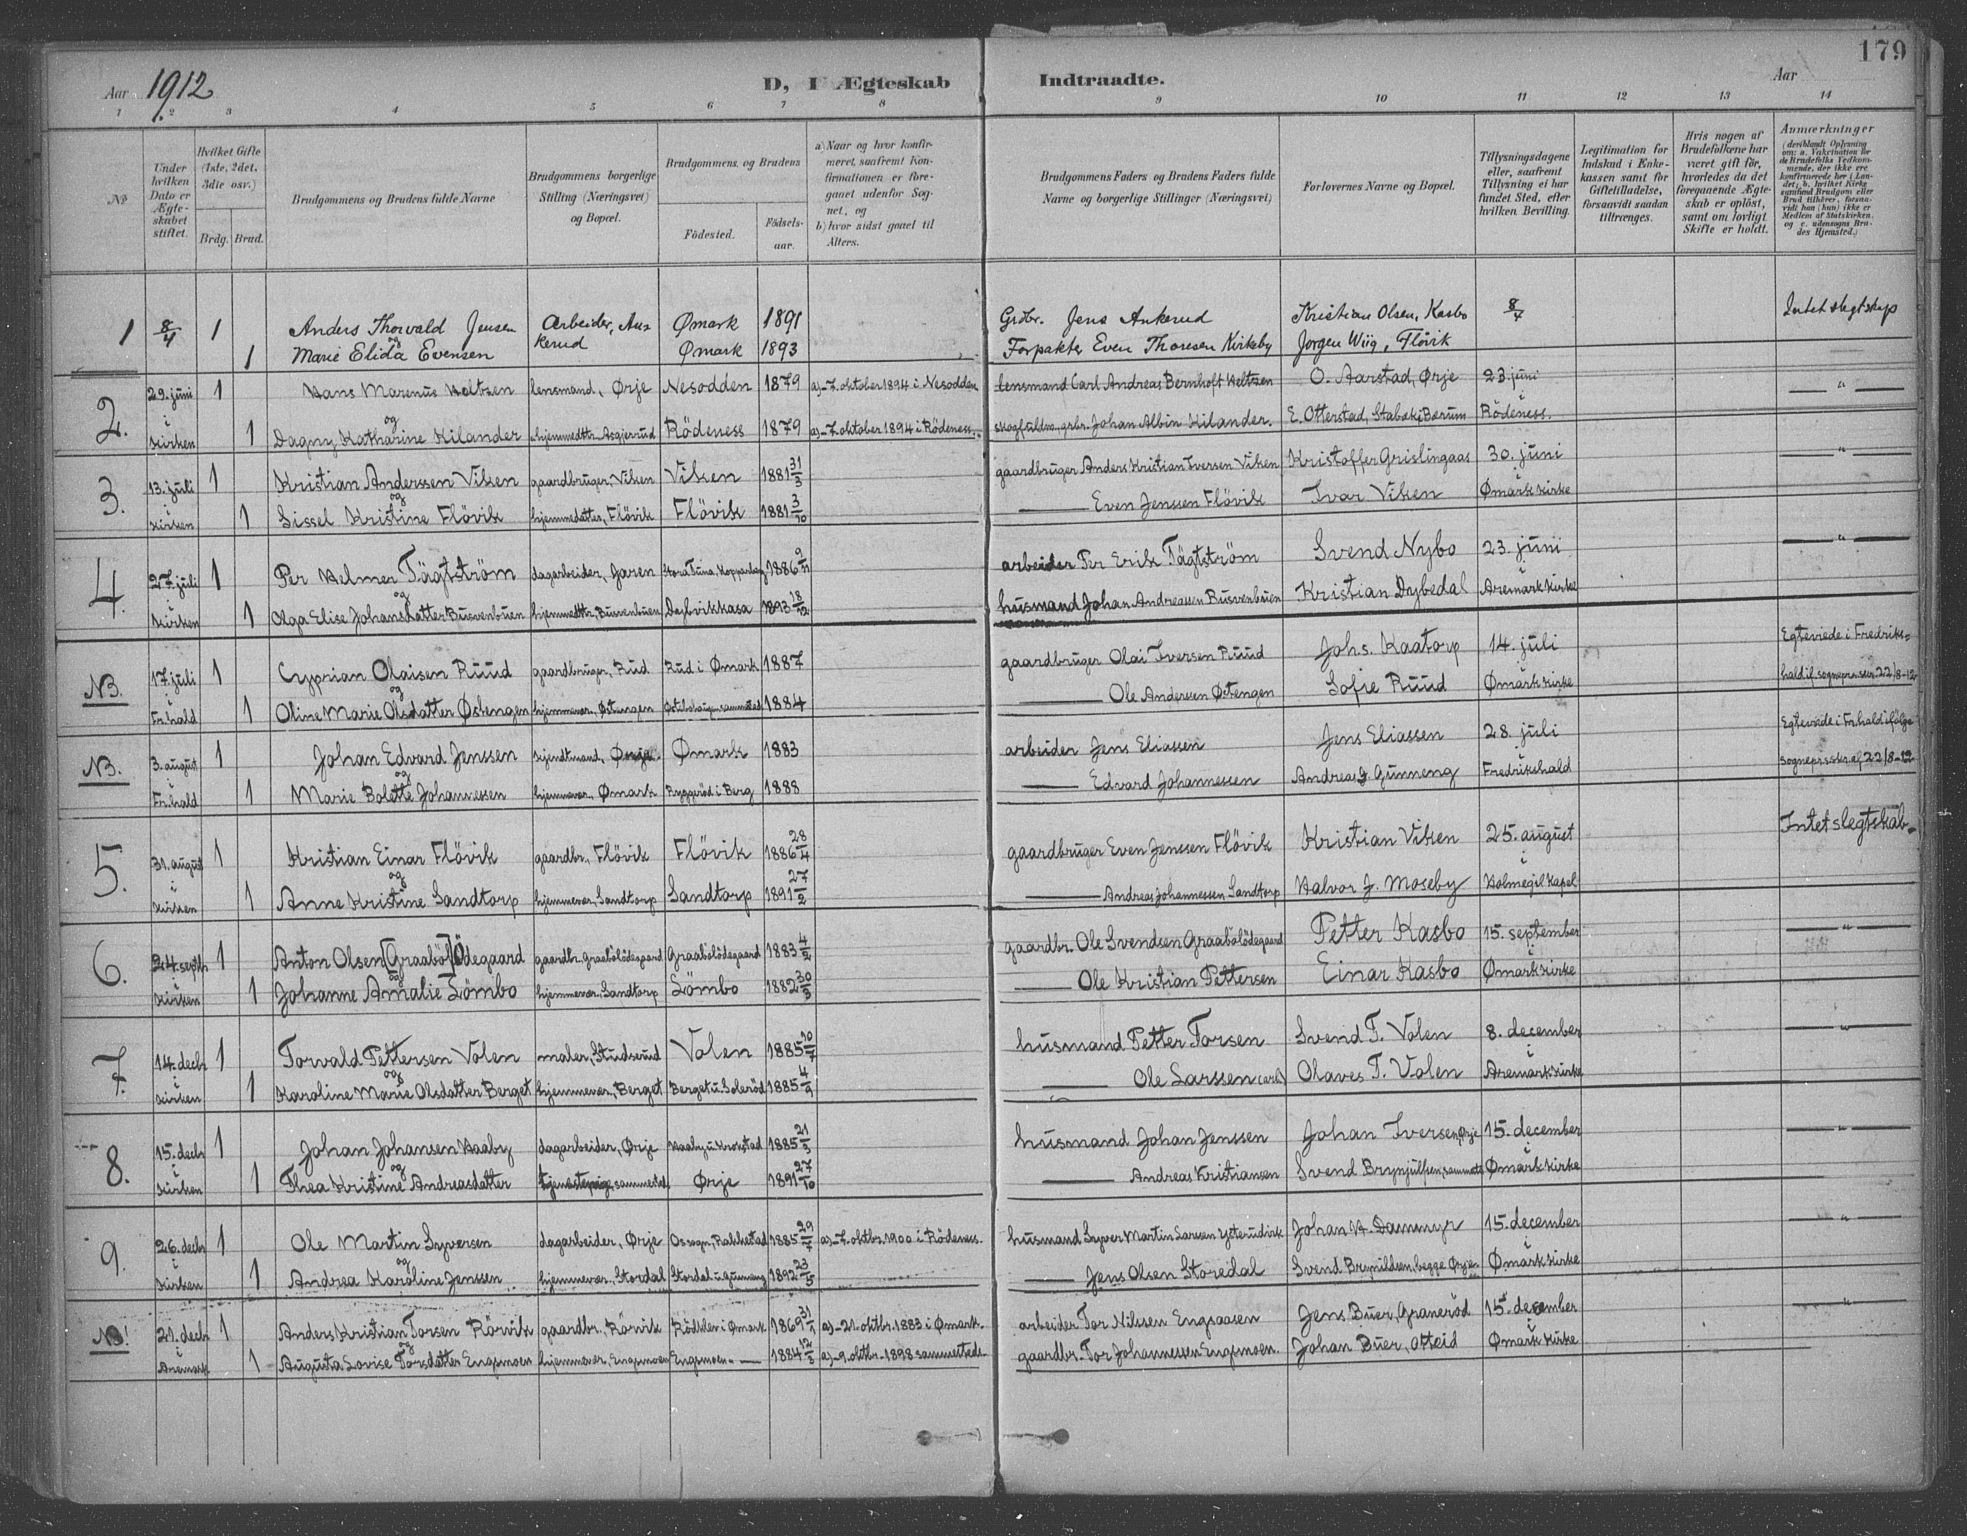 179
Aar 1912 D, I Ægteskab Indtraadte. Aar
1 2 3 4 5 6 7 8 9 10 11 12 13 14
No
Under hvilken Dato er Ægteskabet stiftet.
Hvilket Gifte (1ste, 2det, 3die osv.)
Brdg. Brud.
Brudgommens og Brudens fulde Navne
Brudgommens borgerlige Stilling (Næringsvei) og Bopæl.
Brudgommens, og Brudens
Fødested. Fødselsaar.
a) Naar og hvor konfirmeret, saafremt Konfirmationen er foregaaet udenfor Sognet, og
b) hvor sidst gaaet til Alters.
Brudgommens Faders og Brudens Faders fulde Navne og borgerlige Stillinger (Næringsvei)
Forlovernes Navne og Bopæl.
Tillysningsdagene eller, saafremt Tillysning ei har fundet Sted, efter hvilken Bevilling.
Legitimation for Indskud i Enkekassen samt for Giftetilladelse, forsaavidt saadan tiltrænges.
Hvis nogen af Brudefolkene har været gift før, hvorledes da det foregaaende Ægteskab er opløst, samt om lovligt Skifte er holdt.
Anmærkninger (deriblandt Oplysning om: a. Vakcination for de Brudefolks Vedkommende, der ikke ere konfirmerede her i Landet; b. hvilket Kirkesamfund Brudgom eller Brud tilhører, forsaavidt han (hun) ikke er Medlem af Statskirken, og c. udensogns Brudes Hjemsted.)
1 8/4 1 Anders Thorvald Jensen Arbeider, Ankerud Ømark 1891 Grdbr. Jens Ankerud Kristian Olsen, Kasbo 8/4 Intet slegtskap
og
1 Marie Elida Evensen Ømark 1893 Forpakter Even Thoresen Kirkeby Jørgen Wiig, Flövik
2. 29. juni 1 Hans Marenus Heltzen lensmand, Ørje Nesodden 1879 a)-7. oktober 1894 i Nesodden lensmand Carl Andreas Bernhoft Heltzen O. Aarstad, Ørje 23. juni — " —
i og i
kirken 1 Dagny Katharine Kilander hjemmedttr. Asgjerrud Rödeness 1879 a)-7. oktober 1894 i Rödeness. skogfuldm., grbr. Johan Albin Kilander. E. Otterstad, Stabæk i Bærum Rödeness.
3. 13. juli 1 Kristian Anderssen Viken gaardbruger, Viken Viken 1881 31/3 gaardbruger Anders Kristian Iversen Viken Kristoffer Grislingaas 30. juni — " —
i og i
kirken 1 Sissel Kristine Flövik hjemmedatter, Flövik Flövik 1881 3/10 — Even Jenssen Flövik Ivar Viken Ømark kirke
4. 27. juli 1 Per Helmer Tägtström dagarbeider, Jaren Stora Tuna, Kopparberg 1886 9/11 arbeider Per Erik Tägtström Svend Nybo 23. juni — " —
i og i
kirken 1 Olga Elise Johansdatter Busvenbuen hjemmedttr, Busvenbuen Dalbvikkasa 1893 18/12 husmand Johan Andreassen Busvenbuen Kristian Dybedal Aremark kirke
NB. 17. juli 1 Cyprian Olaisen Ruud gaardbruger, Rud Rud i Ømark 1887 gaardbruger Olai Iversen Ruud Johs. Kaatorp 14. juli Egteviede i Fredriks-
og i
Fr.hald 1 Oline Marie Olsdatter Østengen hjemmevær., Østengen 1884 — Ole Andersen Østengen Sofie Ruud Ømark kirke hald if. sogneprs skr. 22/8-12
NB. 3. august 1 Johan Edvard Jenssen Ørje Ømark 1883 arbeider Jens Eliassen Jens Eliassen 28. juli Egteviede i Fr.hald ifölge
og i
Fr.hald 1 Marie Bolette Johannessen hjemmevær., Ømark Ryggeröd i Berg 1888 — Edvard Johannessen Andreas J. Gunneng Fredrikshald sognepr.s skr. af 22/8-12
5. 31. august 1 Kristian Einar Flövik gaardbr., Flövik Flövik 1886 28/4 gaardbruger Even Jenssen Flövik Kristian Viken 25. august Intet slegtskab.
i og i
kirken 1 Anne Kristine Sandtorp hjemmevær., Sandtorp Sandtorp 1891 27/2 — Andreas Johannessen Sandtorp Halvor J. Moseby Holmegil kapel
6. 24. septbr 1 Anton Olsen [Graaböl] Ödegaard gaardbr. Graabölödegaard Graabölödegaard 1883 4/2 gaardbr. Ole Svendsen Graabölödegaard Petter Kasbo 15. september — " —
i og i
kirken 1 Johanne Amalie Lömbo hjemmevær., Sandtorp Lömbo 1882 30/3 — Ole Kristian Pettersen Einar Kasbo Ømark kirke
7. 14. decbr 1 Torvald Pettersen Volen maler, Studserud Volen 1885 20/7 husmand Petter Torsen Svend T. Volen 8. december — " —
i og i
kirken 1 Karoline Marie Olsdatter Berget hjemmevær., Berget Berget u. Soleröd 1885 4/9 — Ole Larssen Olaves T. Volen Aremark kirke
8. 15. decbr 1 Johan Johansen Haaby dagarbeider, Ørje Haaby u Krokstad 1885 21/3 husmand Johan Jenssen Johan Iversen, Ørje 15. december — " —
i og i
kirken 1 Thea Kristine Andreasdatter tjenestepige, sammestd. Ørje 1891 27/10 — Andreas Kristiansen Svend Brynjulfsen, sammests Ømark kirke
9. 26. decbr 1 Ole Martin Syversen dagarbeider, Ørje Os sogn, Rakkestad 1885 29/7 a)-7. oktbr. 1900 i Rödeness. husmand Syver Martin Larssen Johan A. Dammyr 15. december — " —
i og i
kirken 1 Andrea Karoline Jenssen hjemmevær., Stordal Stordal u. Gunneng 1892 23/5 — Jens Olsen Storedal Svend Brynildsen, begge Ørje Ømark kirke
NB! 21. decbr 1 Anders Kristian Torsen Rörvik gaardbr., Rörvik i Ømark 1869 31/1 a)-21. oktbr. 1883 i Ømark. arbeider Tor Nilssen Engsaasen Jens Buer, Graneröd 15. december — " —
i og i
Aremark 1 Augusta Lovise Torsdatter Engsmoen hjemmevær., Engsmoen Engsmoen — 1884 12/3 a)-9. oktbr. 1898 sammesteds. gaardbr. Tor Johannessen Engsmoen. Johan Buer, Otteid Ømark kirke